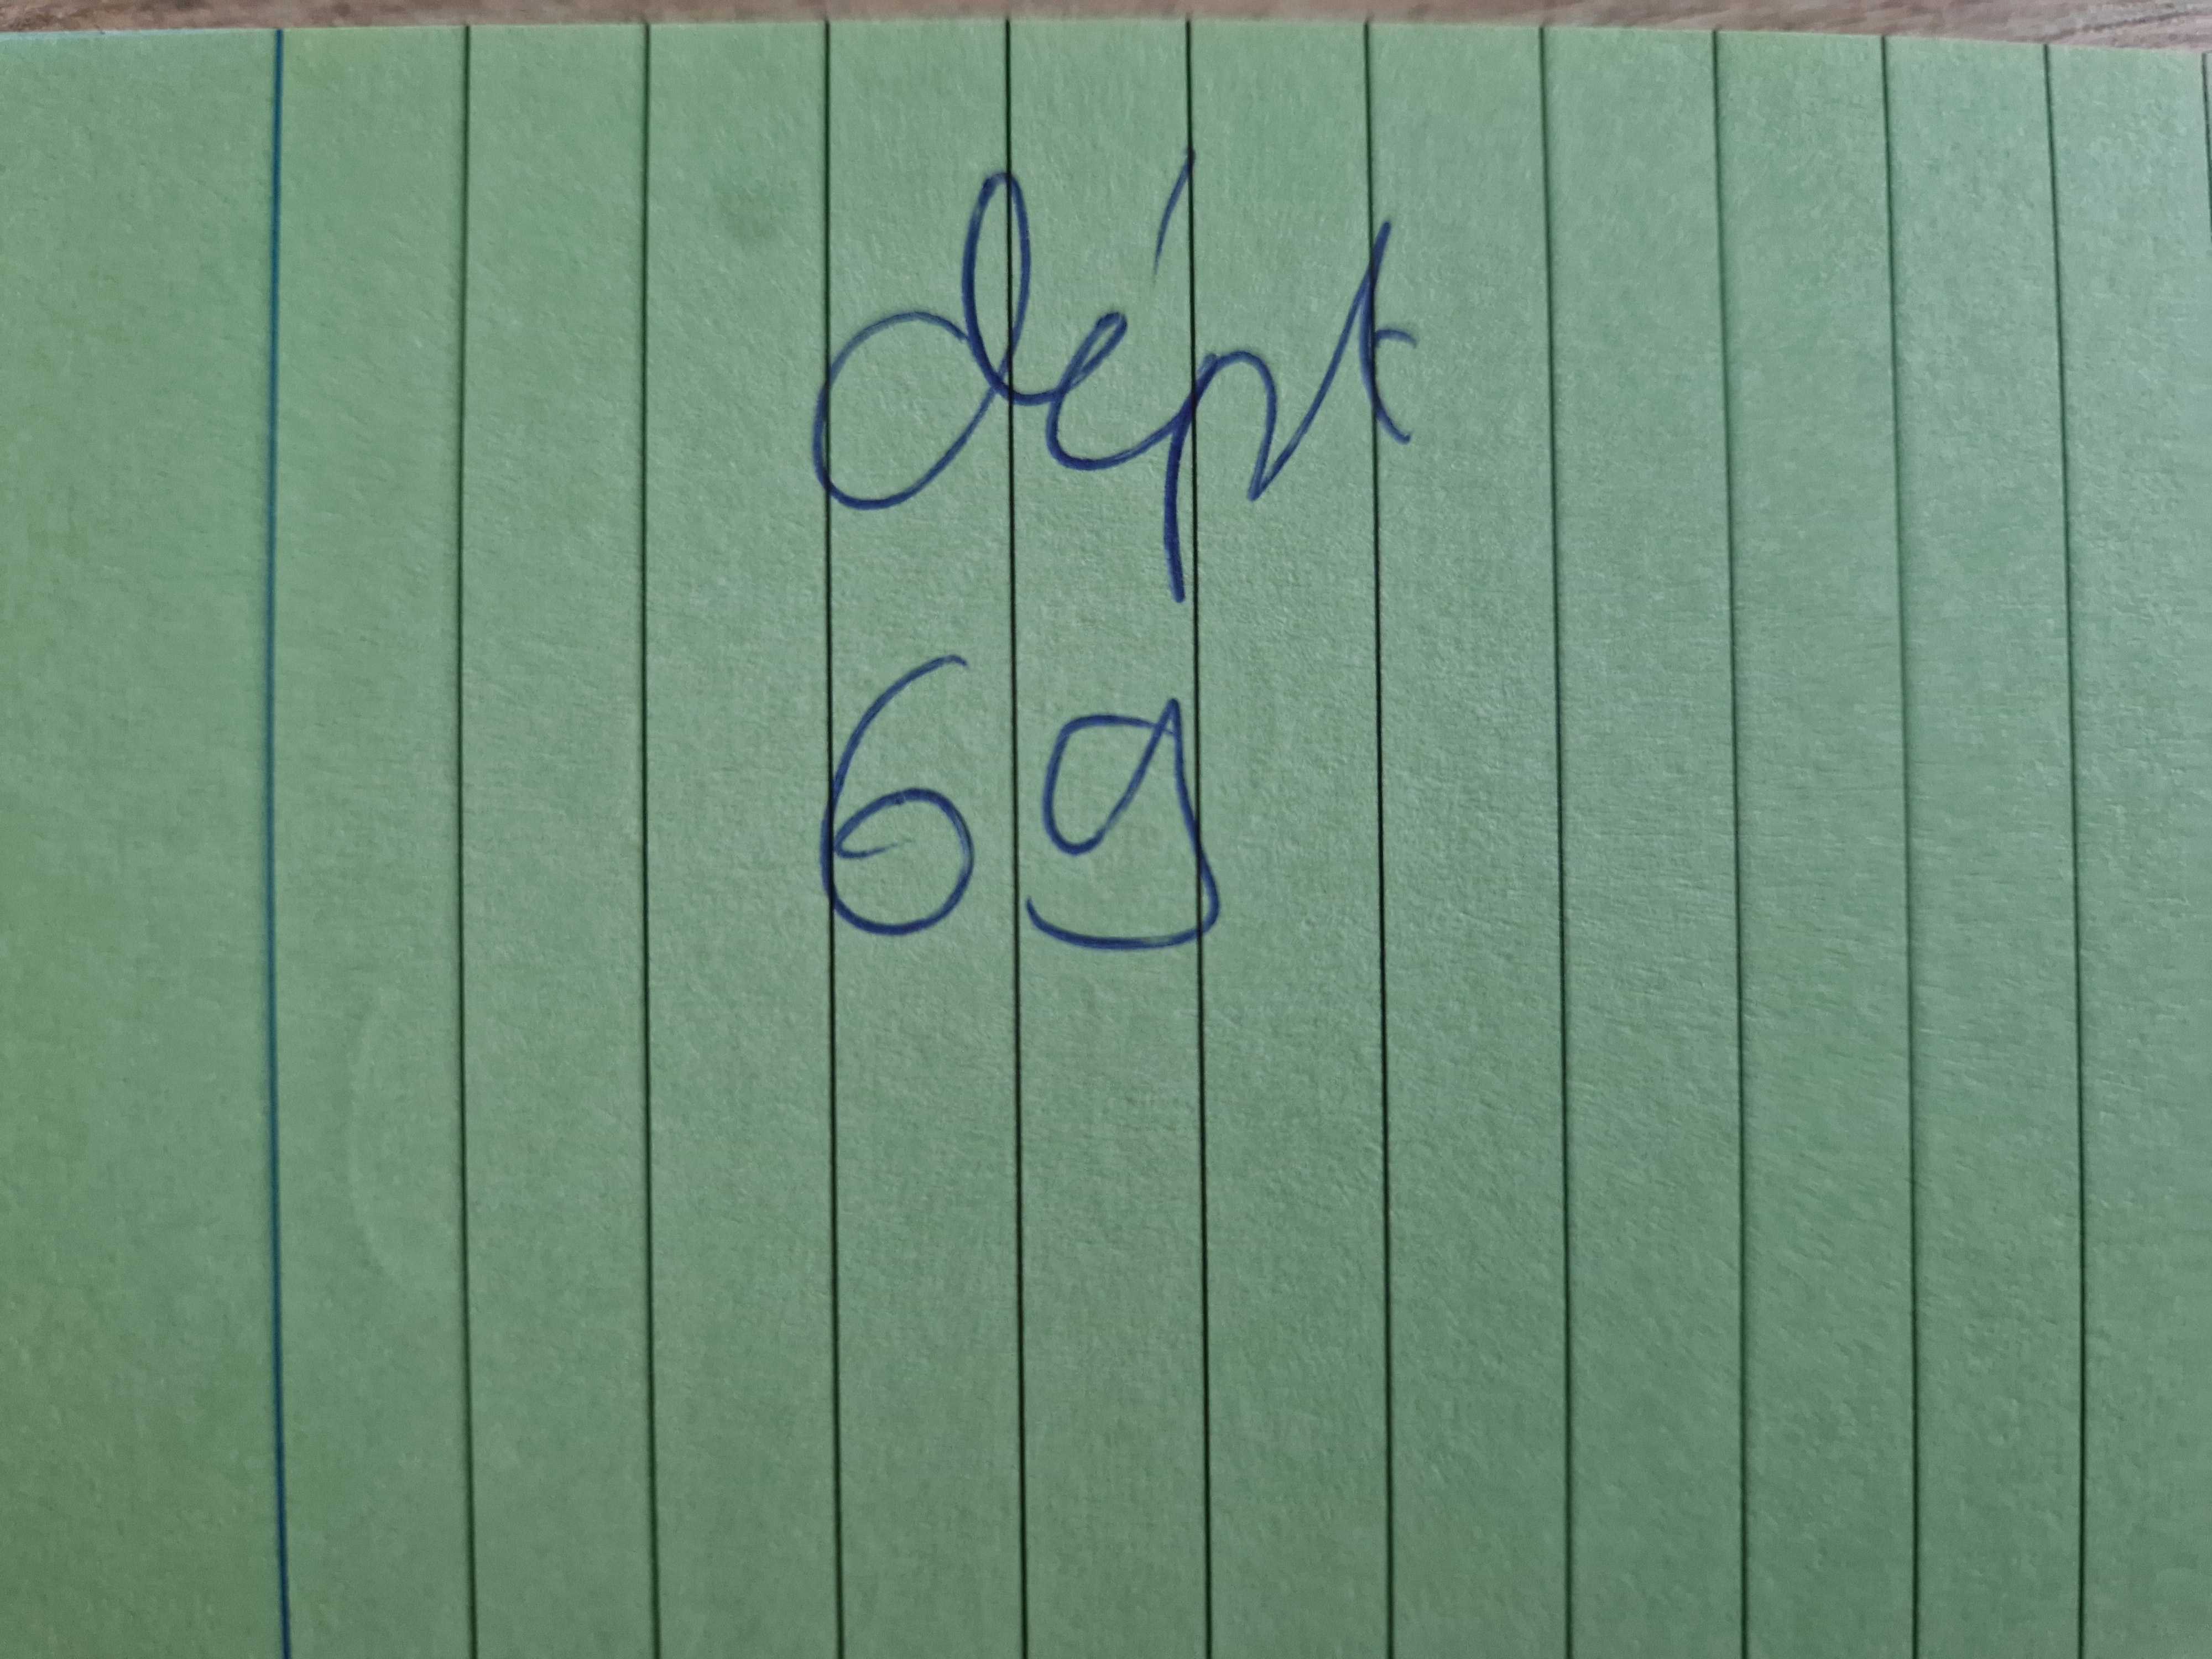 dépt
69